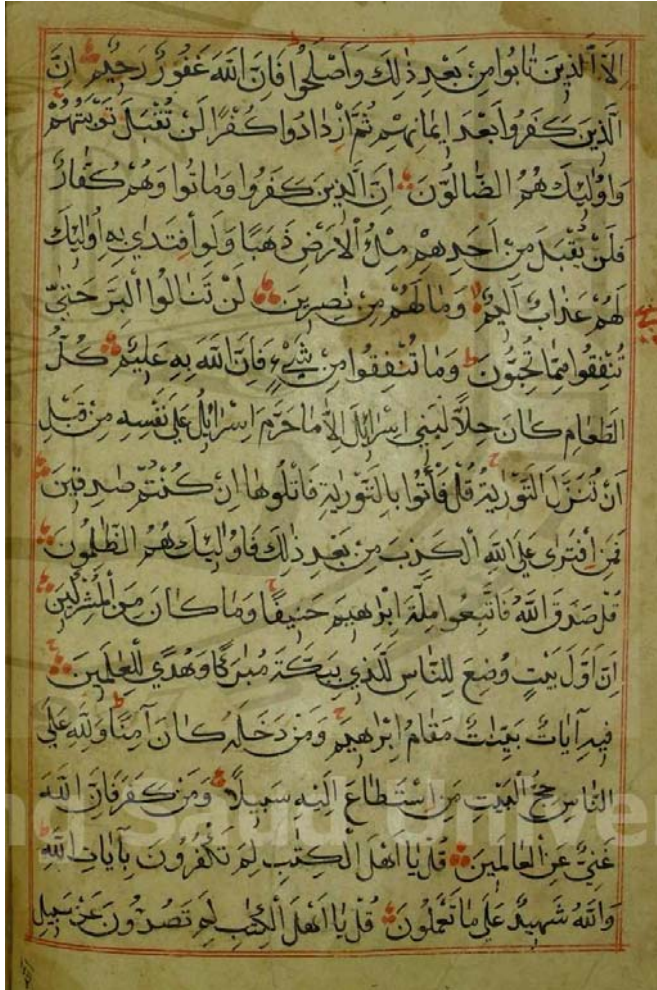 إِلَّا الَّذِينَ تَابُوا مِنْ بَعْدِ ذٰلِكَ وَأَصْلَحُوا فَإِنَّ اللَّهَ غَفُورٌ رَحِيمٌ إِنَّ
الَّذِينَ كَفَرُوا بَعْدَ إِيمَانِهِمْ ثُمَّ ازْدَادُوا كُفْرًا لَنْ تُقْبَلَ تَوْبَتُهُمْ
وَأُولٰئِكَ هُمُ الضَّالُّونَ إِنَّ الَّذِينَ كَفَرُوا وَمَاتُوا وَهُمْ كُفَّارٌ
فَلَنْ يُقْبَلَ مِنْ أَحَدِهِمْ مِلْءُ الْأَرْضِ ذَهَبًا وَلَوِ افْتَدٰى بِهِ أُولٰئِكَ
لَهُمْ عَذَابٌ أَلِيمٌ وَمَا لَهُمْ مِنْ نٰصِرِينَ لَنْ تَنَالُوا الْبِرَّ حَتّٰى
تُنْفِقُوا مِمَّا تُحِبُّونَ وَمَا تُنْفِقُوا مِنْ شَيْءٍ فَإِنَّ اللَّهَ بِهِ عَلِيمٌ كُلُّ
الطَّعَامِ كَانَ حِلًّا لِبَنِي إِسْرَائِلَ إِلَّا مَا حَرَّمَ إِسْرَائِلُ عَلَى نَفْسِهِ مِنْ قَبْلِ
أَنْ تُنَزَّلَ التَّوْرٰيةُ قُلْ فَأْتُوا بِالتَّوْرٰيةِ فَاتْلُوهَا إِنْ كُنْتُمْ صٰدِقِينَ
فَمَنِ افْتَرٰى عَلَى اللَّهِ الْكَذِبَ مِنْ بَعْدِ ذٰلِكَ فَأُولٰئِكَ هُمُ الظّٰلِمُونَ
قُلْ صَدَقَ اللَّهُ فَاتَّبِعُوا مِلَّةَ إِبْرٰهِيمَ حَنِيفًا وَمَا كَانَ مِنَ الْمُشْرِكِينَ
إِنَّ أَوَّلَ بَيْتٍ وُضِعَ لِلنَّاسِ لَلَّذِي بِبَكَّةَ مُبٰرَكًا وَهُدًى لِلْعٰلَمِينَ
فِيهِ آيَاتٌ بَيِّنٰتٌ مَقَامُ إِبْرٰهِيمَ وَمَنْ دَخَلَهُ كَانَ آمِنًا وَلِلَّهِ عَلَى
النَّاسِ حِجُّ الْبَيْتِ مَنِ اسْتَطَاعَ إِلَيْهِ سَبِيلًا وَمَنْ كَفَرَ فَإِنَّ اللَّهَ
غَنِيٌّ عَنِ الْعَالَمِينَ قُلْ يَا أَهْلَ الْكِتٰبِ لِمَ تَكْفُرُونَ بِآيَاتِ اللَّهِ
وَاللَّهُ شَهِيدٌ عَلَى مَا تَعْمَلُونَ قُلْ يَا أَهْلَ الْكِتٰبِ لِمَ تَصُدُّونَ عَنْ سَبِيلِ